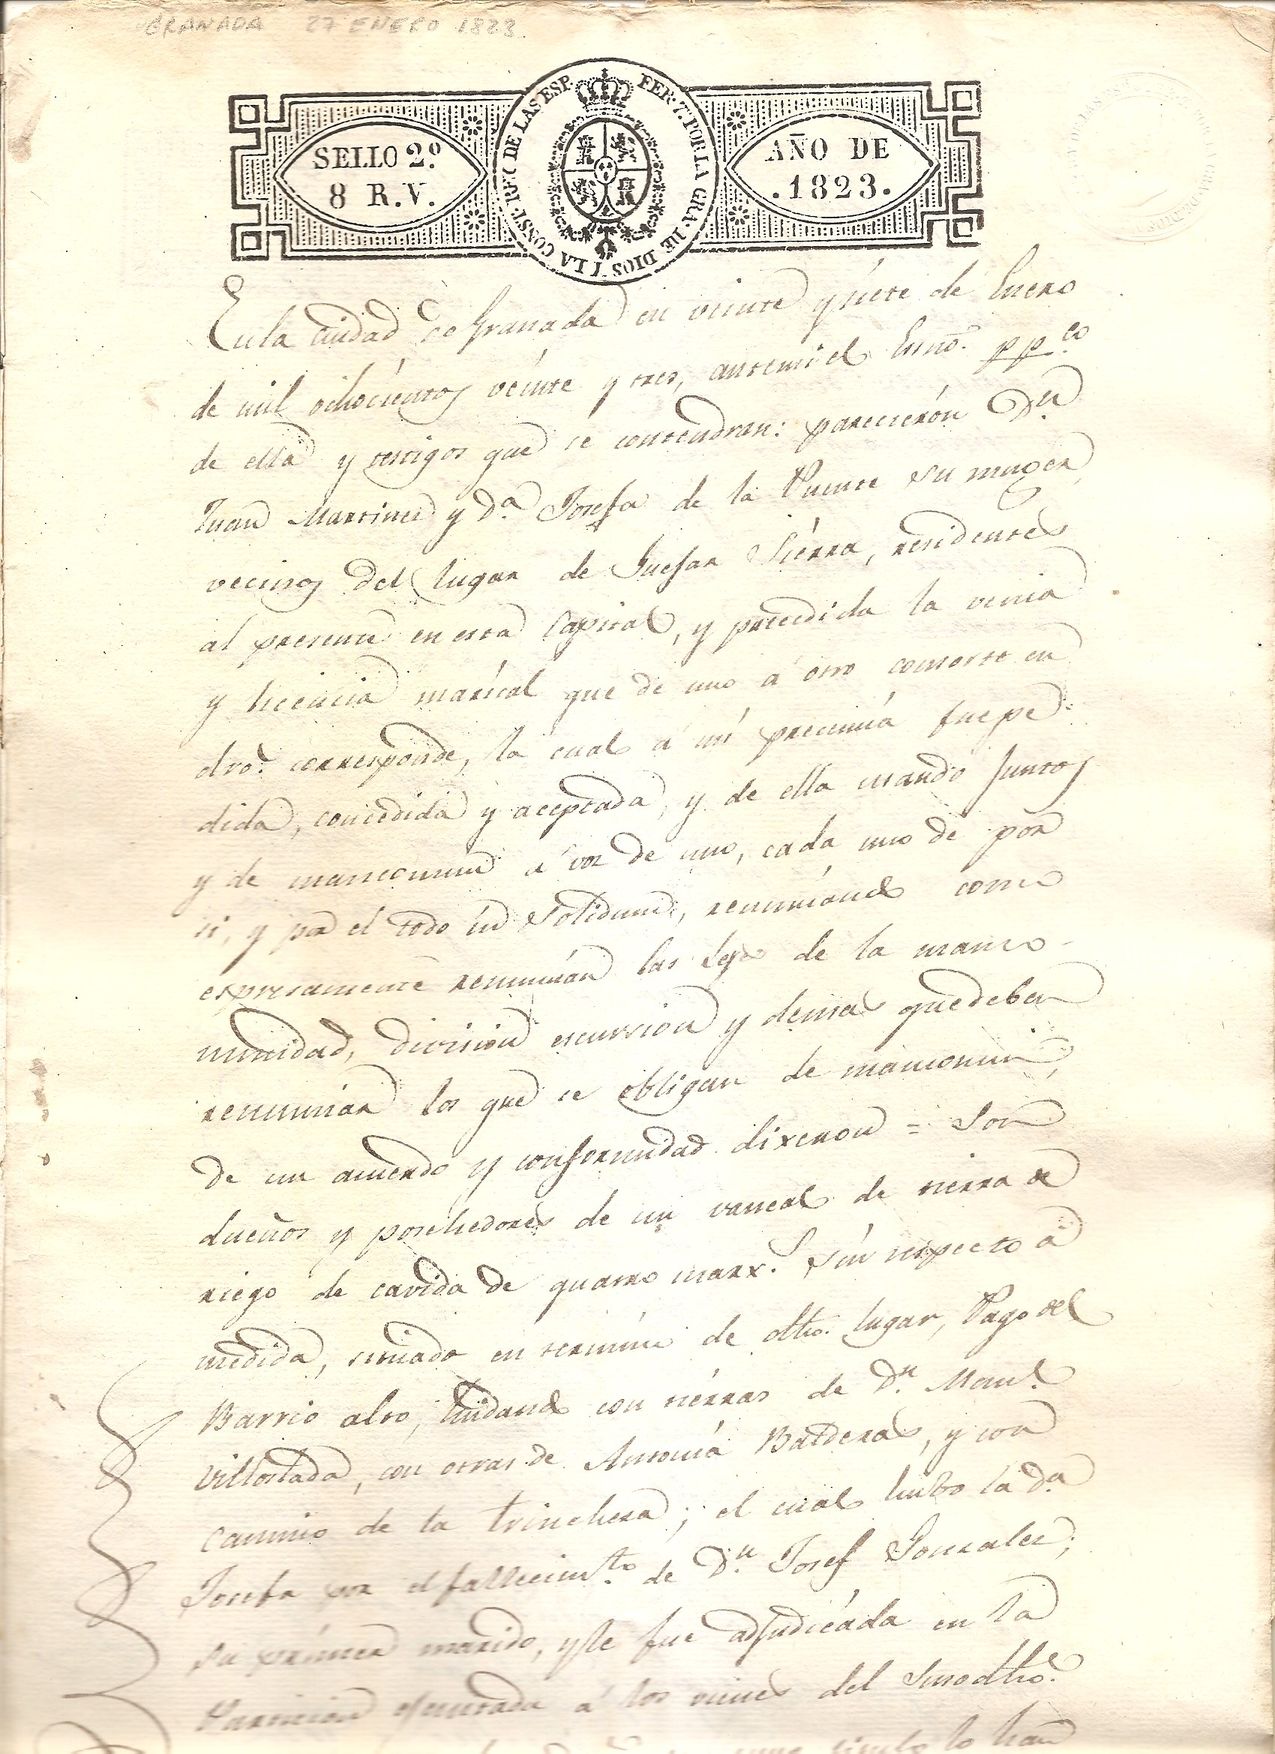 GRANADA 27 ENERO 1823
SELLO 2º
8 R.V.
FER. 7. POR LA GRA. DE DIOS Y LA CONST. REY DE LAS ESP.
AÑO DE
.1823.
En la ciudad de Granada en veinte y siete de Enero
de mil ochocientos veinte y tres, ante mi el Essno. ppco
de ella y testigos que se contendran: parecierón Dn.
Juan Martinez y Da. Josefa de la Puente su muger
vecinos del lugar de Guejar Sierra, residentes
al presente en esta Capital, y precedida la venia
y licencia marital que de uno a otro consorte en
dro. corresponde, la cual a mi presencia fue pe
dida, concedida y aceptada, y de ella usando juntos
y de mancomun a voz de uno, cada uno de por
si, y por el todo in solidum, renunciando como
espresamente renuncian las Leyes de la manco-
munidad, division escursion y demas que deben
renunciar los que se obligan de mancomun,
de un acuerdo y conformidad dixeron = Son
dueños y posehedores de un vancal de tierra de
riego de cavida de quatro marx.s sin respecto a
medida, situado en termino de dho. lugar, Pago del
Barrio alto, lindando con tierras de Dn. Manl.
Villostada, con otras de Antonia Balderas, y con
Camino de la trinchera; el cual hubo la Da.
Josefa por el fallecimto. de Dn. Josef Gonzalez,
su primer marido, y le fue adjudicada en la
Particion ejecutada a los vienes del susodho.
lo han